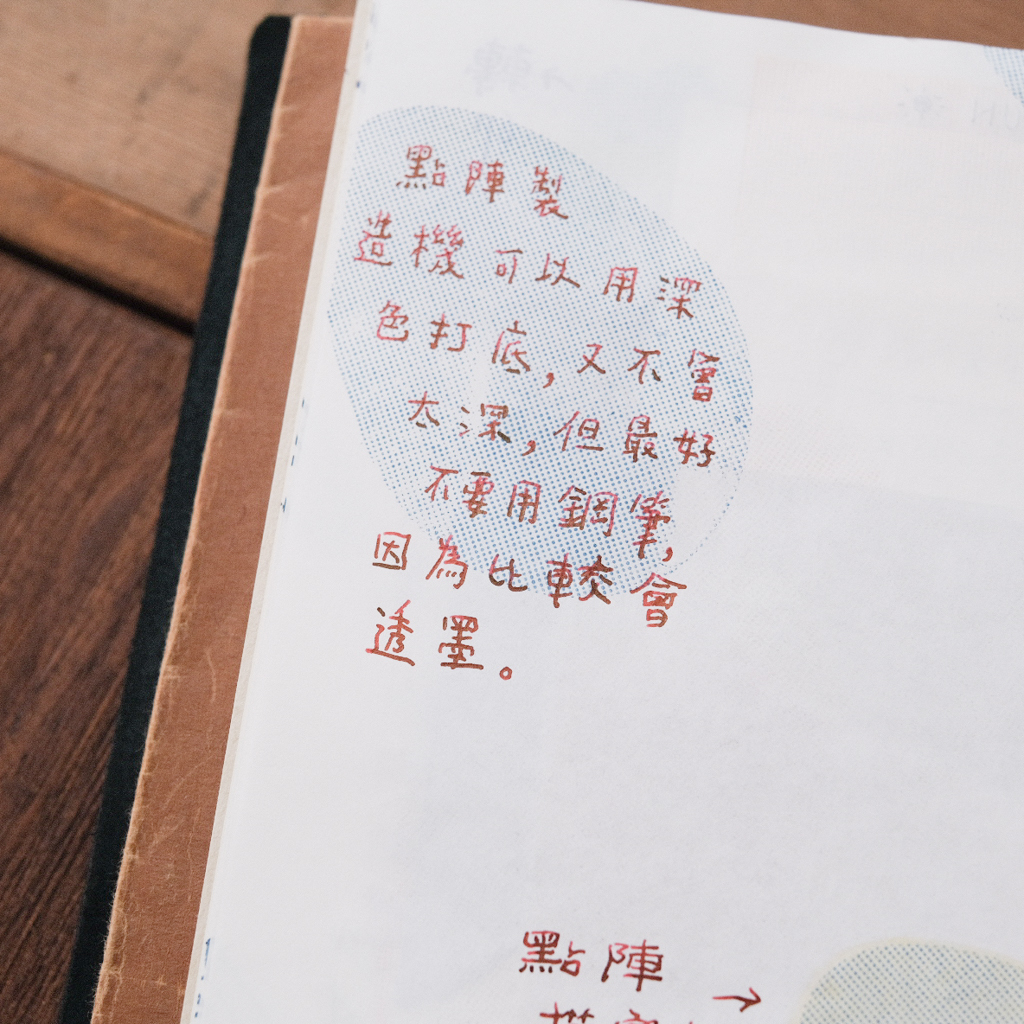 點陣製
造機可以用深
色打底,又不會
太深,但最好
不要用鋼筆,
因為比較會
透墨。
點陣
→